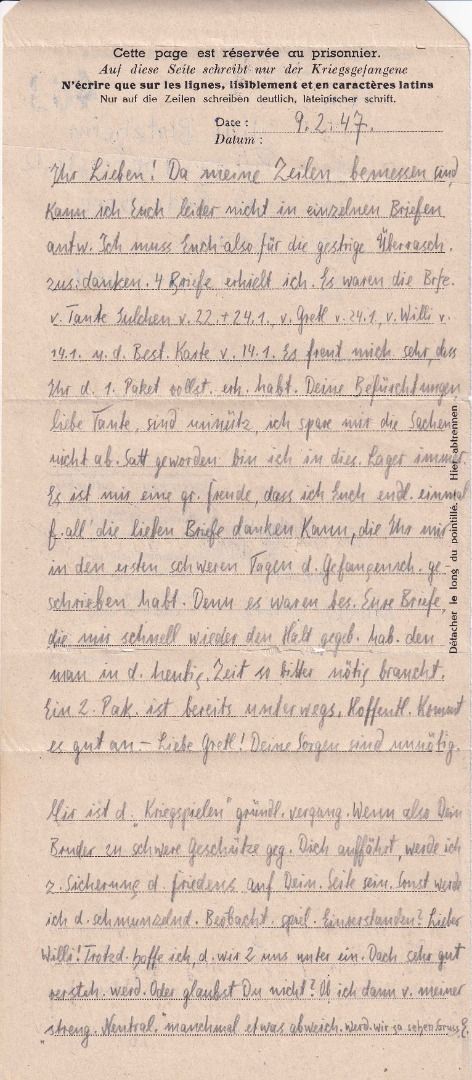 Cette page est réservée au prisonnier.
Auf diese Seite schreibt nur der Kriegsgefangene
N'écrire que sur les lignes, lisiblement et en caractères latins
Nur auf die Zeilen schreiben deutlich, lateinischer schrift.
Date : 9.2.47.
Datum :
Ihr Lieben! Da meine Zeilen bemessen sind,
kann ich Euch leider nicht in einzelnen Briefen
antw. Ich muss Euch also für die gestrige Überrasch.
zus. danken. 4 Briefe erhielt ich. Es waren die Brfe.
v. Tante Julchen v. 22. + 24.1., v. Gretl v. 24.1., v. Willi v.
14.1. u. d. Best. Karte v. 14.1. Es freut mich sehr, dass
Ihr d. 1. Paket vollst. erh. habt. Deine Befürchtungen
liebe Tante, sind unnütz, ich spare mir die Sachen
nicht ab. Satt geworden bin ich in dies. Lager immer.
Es ist mir eine gr. Freude, dass ich Euch endl. einmal
f. all' die lieben Briefe danken kann, die Ihr mir
in den ersten schweren Tagen d. Gefangensch. ge-
schrieben habt. Denn es waren bes. Eure Briefe,
die mir schnell wieder den Halt gegeb. hab. den
man in d. heutig. Zeit so bitter nötig braucht.
Ein 2. Pak. ist bereits unterwegs. Hoffentl. kommt
es gut an. – Liebe Gretl! Deine Sorgen sind unnötig.
Mir ist d. „Kriegspielen" gründl. vergang. Wenn also Dein
Bruder zu schwere Geschütze geg. Dich auffährt, werde ich
z. Sicherung d. Friedens auf Dein. Seite sein. Sonst werde
ich d. schmunzelnd. Beobacht. spiel. Einverstanden? Lieber
Willi! Trotzd. hoffe ich, d. wir 2 uns unter ein. Dach sehr gut
versteh. werd. Oder glaubst Du nicht? Ob ich dann v. meiner
„streng. Neutral." manchmal etwas abweich. werd. wir ja sehen. Gruss, E.
Détacher le long du pointillé. Hier abtrennen